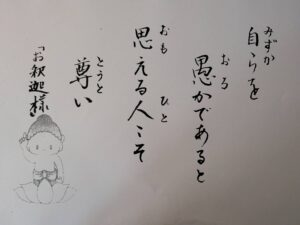 自らを
愚かであると
思える人こそ
尊い
「お釈迦様」
みずか
おろ
おも
ひと
とうと